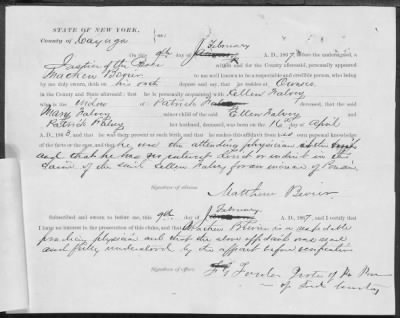 STATE OF NEW YORK.
County of Cayuga } ss:
On this 9th day of February A. D., 1867, before the undersigned, a
Justice of the Peace within and for the County aforesaid, personally appeared
to me well known to be a respectable and credible person, who being
by me duly sworn, doth on his oath depose and say, that he resides at Owasco
in the County and State aforesaid; that he is personally acquainted with Ellen Falvey
who is the widow of Patrick deceased, that the said
Mary Falvey minor child of the said Ellen Falvey and
Patrick Falvey her husband, deceased, was born on the 16th of April
A. D., 186 and that he was there present at such birth, and that he makes this affidavit from his own personal knowledge
of the facts or the ages, and that he was the attending physician
and that he has no interest direct or indirect in the
claim of the said Ellen Falvey for an increase of Pension
Signature of affiant
Matthew
Subscribed and sworn to before me, this 9th day of February A. D., 1867, and I certify that
I have no interest in the prosecution of this claim, and that is a respectable
practicing physician and that the above affidavit was read
and fully understood by the affiant before
Signature of officer,
Justice of the Peace
of said County